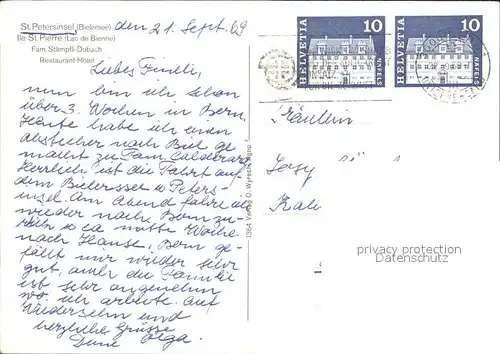 St. Petersinsel (Bielersee)
Ile St. Pierre (Lac de Bienne)
Fam. Stämpfli-Dubach
Restaurant-Hotel
den 21. Sept. 69
Liebes Fineli,
nun bin ich schon
über 3 Wochen in Bern,
Heute habe ich einen
abstecher nach Biel ge
macht zu Fam. Calderara
Herrlich ist die Fahrt auf
dem Bielersee u Peters-
insel. Am Abend fahre ich
wieder nach Bern zu-
rück u ca mitte Woche
nach Hause, Bern ge-
fällt mir wieder sehr
gut, auch die Familie
ist sehr angenehm
wo ich arbeite. Auf
Wiedersehn und
herzliche Grüsse
Deine Olga.
1364 Verlag O. Wyrsch
HELVETIA 10 NÄFELS
HELVETIA 10 NÄFELS
Fräulein
privacy protection
Datenschutz